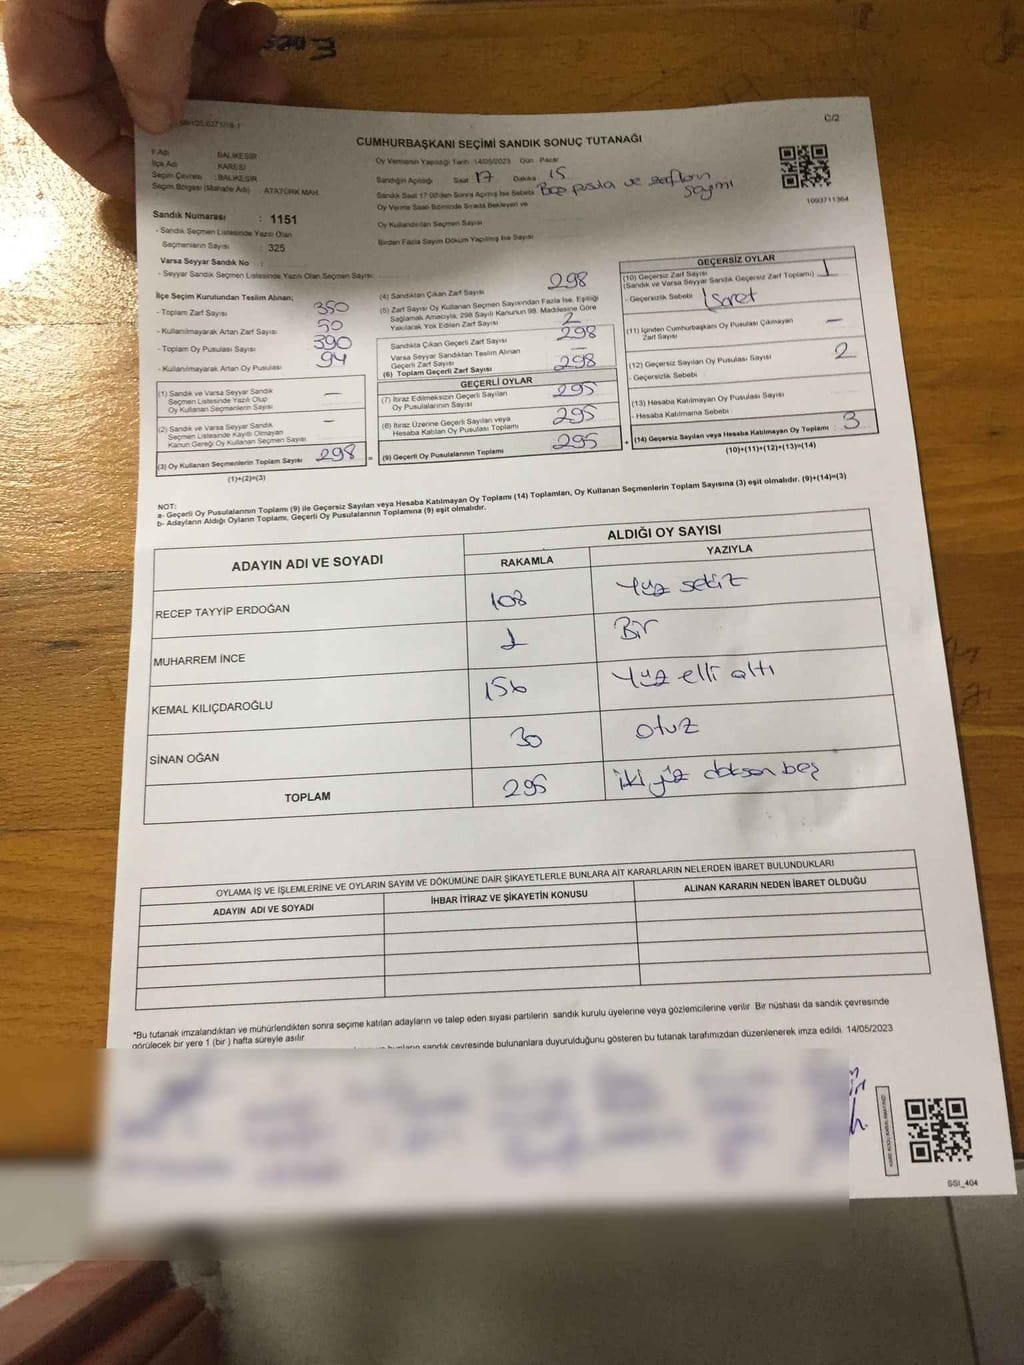 C/2
CUMHURBAŞKANI SEÇİMİ SANDIK SONUÇ TUTANAĞI
İl Adı : BALIKESİR
İlçe Adı : KARESİ
Seçim Çevresi : BALIKESİR
Seçim Bölgesi (Mahalle Adı) : ATATÜRK MAH.
Oy Vermenin Yapıldığı Tarih :14/05/2023 Gün :Pazar
Sandığın Açıldığı Saat 17 Dakika 15
Sandık Saat 17:00'den Sonra Açılmış İse Sebebi Boş pusula ve zarfların sayımı
Oy Verme Saati Bitiminde Sırada Bekleyen ve
Oy Kullandırılan Seçmen Sayısı
Birden Fazla Sayım Döküm Yapılmış İse Sayısı
1093711364
Sandık Numarası : 1151
- Sandık Seçmen Listesinde Yazılı Olan
Seçmenlerin Sayısı : 325
Varsa Seyyar Sandık No :
- Seyyar Sandık Seçmen Listesinde Yazılı Olan Seçmen Sayısı:
İlçe Seçim Kurulundan Teslim Alınan;
- Toplam Zarf Sayısı 350
- Kullanılmayarak Artan Zarf Sayısı 50
- Toplam Oy Pusulası Sayısı 390
- Kullanılmayarak Artan Oy Pusulası 94
(1) Sandık ve Varsa Seyyar Sandık
Seçmen Listesinde Yazılı Olup
Oy Kullanan Seçmenlerin Sayısı —
(2) Sandık ve Varsa Seyyar Sandık
Seçmen Listesinde Kayıtlı Olmayan
Kanun Gereği Oy Kullanan Seçmen Sayısı —
(3) Oy Kullanan Seçmenlerin Toplam Sayısı 298 =
(1)+(2)=(3)
(4) Sandıktan Çıkan Zarf Sayısı 298
(5) Zarf Sayısı Oy Kullanan Seçmen Sayısından Fazla İse, Eşitliği
Sağlamak Amacıyla, 298 Sayılı Kanunun 98. Maddesine Göre
Yakılarak Yok Edilen Zarf Sayısı 2
Sandıkta Çıkan Geçerli Zarf Sayısı 298
Varsa Seyyar Sandıktan Teslim Alınan
Geçerli Zarf Sayısı —
(6) Toplam Geçerli Zarf Sayısı 298
GEÇERLİ OYLAR
(7) İtiraz Edilmeksizin Geçerli Sayılan
Oy Pusulalarının Sayısı 295
(8) İtiraz Üzerine Geçerli Sayılan veya
Hesaba Katılan Oy Pusulası Toplamı 295
(9) Geçerli Oy Pusulalarının Toplamı 295 +
GEÇERSİZ OYLAR
(10) Geçersiz Zarf Sayısı
(Sandık ve Varsa Seyyar Sandık Geçersiz Zarf Toplamı) 1
- Geçersizlik Sebebi İşaret
(11) İçinden Cumhurbaşkanı Oy Pusulası Çıkmayan
Zarf Sayısı —
(12) Geçersiz Sayılan Oy Pusulası Sayısı 2
- Geçersizlik Sebebi
(13) Hesaba Katılmayan Oy Pusulası Sayısı
- Hesaba Katılmama Sebebi
(14) Geçersiz Sayılan veya Hesaba Katılmayan Oy Toplamı : 3
(10)+(11)+(12)+(13)=(14)
NOT:
a- Geçerli Oy Pusulalarının Toplamı (9) ile Geçersiz Sayılan veya Hesaba Katılmayan Oy Toplamı (14) Toplamları, Oy Kullanan Seçmenlerin Toplam Sayısına (3) eşit olmalıdır. (9)+(14)=(3)
b- Adayların Aldığı Oyların Toplamı, Geçerli Oy Pusulalarının Toplamına (9) eşit olmalıdır.
ADAYIN ADI VE SOYADI
ALDIĞI OY SAYISI
RAKAMLA YAZIYLA
RECEP TAYYİP ERDOĞAN 108 Yüz sekiz
MUHARREM İNCE 1 Bir
KEMAL KILIÇDAROĞLU 156 Yüz elli altı
SİNAN OĞAN 30 otuz
TOPLAM 295 iki yüz doksan beş
OYLAMA İŞ VE İŞLEMLERİNE VE OYLARIN SAYIM VE DÖKÜMÜNE DAİR ŞİKAYETLERLE BUNLARA AİT KARARLARIN NELERDEN İBARET BULUNDUKLARI
ADAYIN ADI VE SOYADI İHBAR İTİRAZ VE ŞİKAYETİN KONUSU ALINAN KARARIN NEDEN İBARET OLDUĞU
*Bu tutanak imzalandıktan ve mühürlendikten sonra seçime katılan adayların ve talep eden siyasi partilerin sandık kurulu üyelerine veya gözlemcilerine verilir. Bir nüshası da sandık çevresinde
görülecek bir yere 1 (bir ) hafta süreyle asılır.
sandık çevresinde bulunanlara duyurulduğunu gösteren bu tutanak tarafımızdan düzenlenerek imza edildi. 14/05/2023
SSI_404